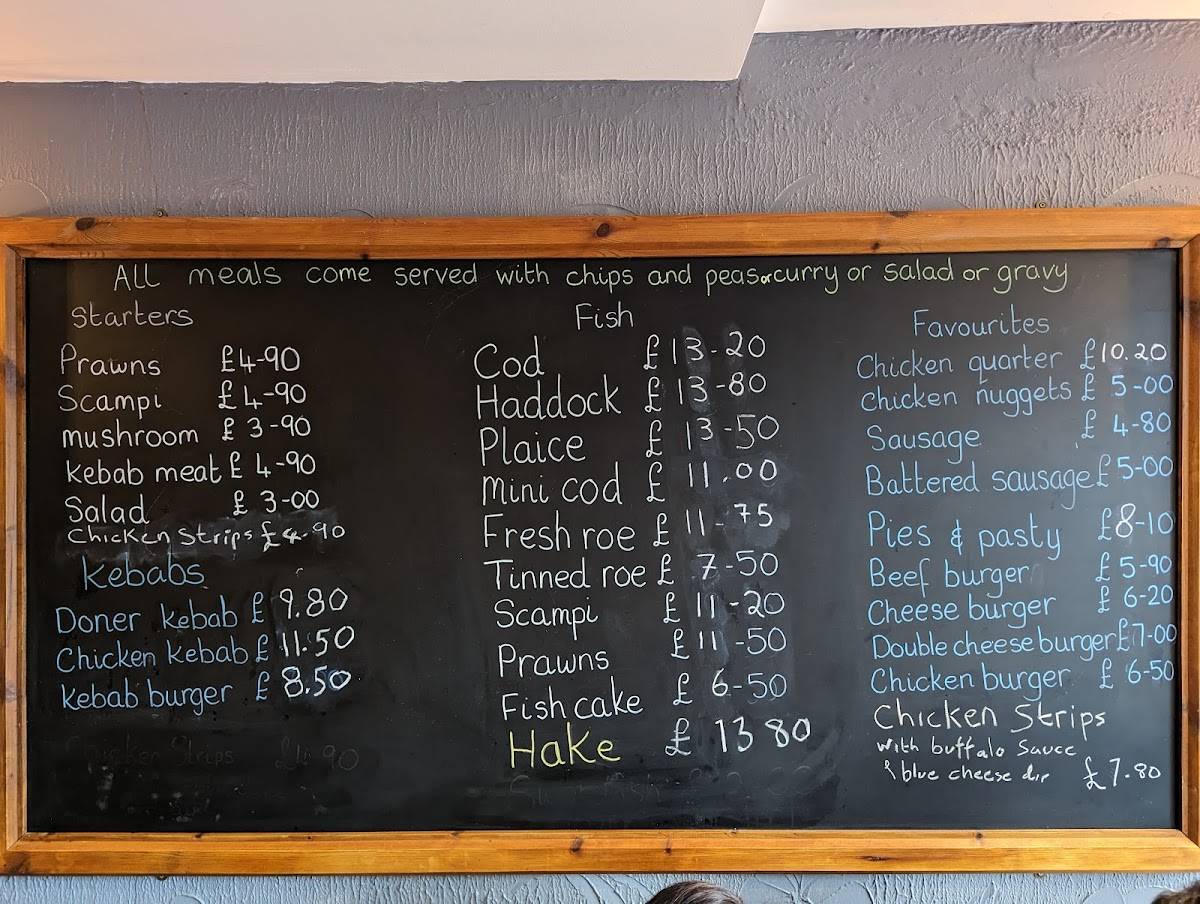 All meals come served with chips and peas or curry or salad or gravy
Starters
Prawns £4-90
Scampi £4-90
mushroom £3-90
Kebab meat £4-90
Salad £3-00
Chicken Strips £4.90
Kebabs
Doner kebab £9.80
Chicken kebab £11.50
Kebab burger £8.50
Chicken Strips £4.90
Fish
Cod £13-20
Haddock £13-80
Plaice £13-50
Mini cod £11.00
Fresh roe £11-75
Tinned roe £7-50
Scampi £11-20
Prawns £11-50
Fish cake £6-50
Hake £13 80
Favourites
Chicken quarter £10.20
Chicken nuggets £5-00
Sausage £4-80
Battered sausage £5-00
Pies & pasty £8-10
Beef burger £5-90
Cheese burger £6-20
Double cheese burger £7-00
Chicken burger £6-50
Chicken Strips
with buffalo Sauce
& blue cheese dip £7.80